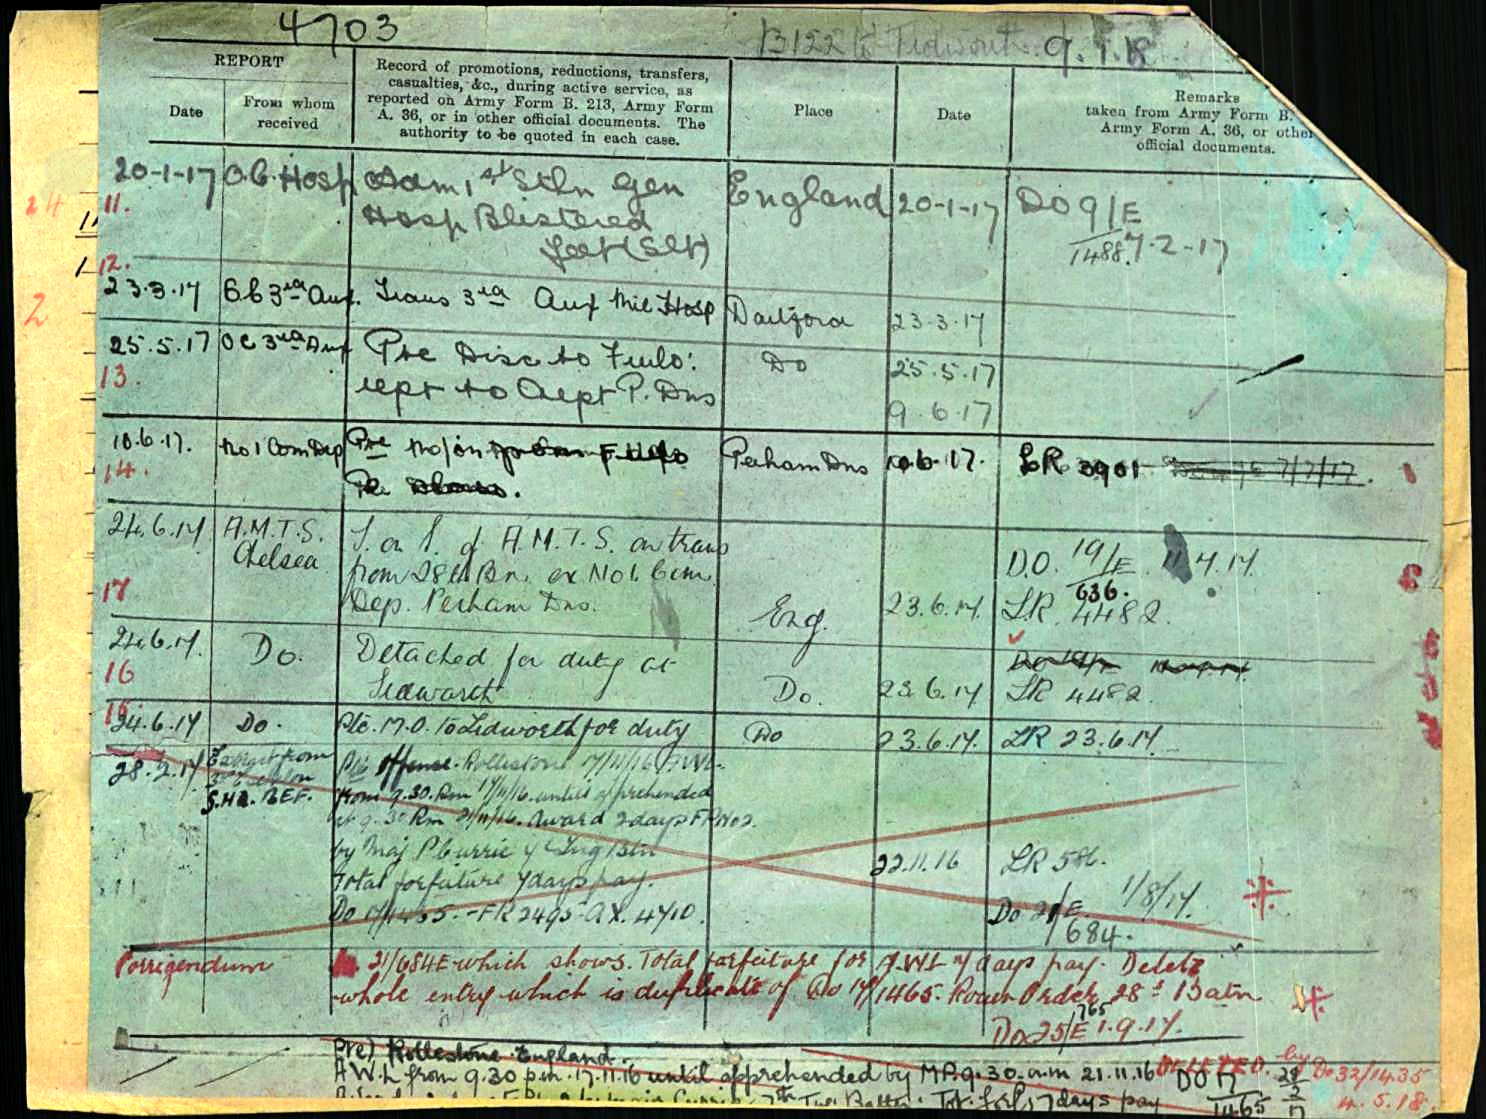 4703
B122 Tidworth 9.1.R
REPORT
Date
From whom
received
Record of promotions, reductions, transfers,
casualties, &c., during active service, as
reported on Army Form B. 213, Army Form
A. 36, or in other official documents. The
authority to be quoted in each case.
Place
Date
Remarks
taken from Army Form B.
Army Form A. 36, or other
official documents.
20-1-17 O.C. Hosp Adm 1st Sthn Gen England 20-1-17 DO 9/E
11. Hosp Blistered 1488. 7-2-17
24 Feet (Slt)
12.
23.3.17 O C 3rd Aux. Trans 3rd Aux Mil Hosp Dartford 23.3.17
2
25.5.17 O C 3rd Aux Pte Disc to Furlo: Do 25.5.17
13. rept to Dept P. Dns 9.6.17
10.6.17. No 1 Com Dep Pte M/in from Furlo Perham Dns 10.6.17. LR 3901
14.
24.6.17 A.M.T.S. T. on S. of A.M.T.S. on trans D.O. 19/E 11.7.17.
Chelsea from 28th Bn. ex No 1. Com. 636.
17 Dep. Perham Dns. Eng. 23.6.17. LR. 4482.
24.6.17. Do. Detached for duty at
16 Tidworth Do. 23.6.17 LR 4482
15.
24.6.17 Do. Pte. M.O. to Tidworth for duty Do 23.6.17. LR 23.6.17.
28.2.17 Extract from Pte Offense. Rollestone 17/11/16 AWL.
3rd Echelon from 9.30. Pm 17/11/16. until apprehended
G.H.Q. BEF. at 9.30 Am 21/11/16. Award 2 days FP No 2.
by Maj P Currie 7 Trng Btn 22.11.16 LR 586.
Total forfeiture 7 days pay. 1/8/17.
Do 17/1465. - FR 2495 - AX. 4710. Do 21/E
684.
Corrigendum 21/684E which shows. Total forfeiture for AWL 7 days pay. Delete
whole entry which is duplicate of Do 17/1465. Rouen Order 28th Batn
Do 25/E 765 1.9.17.
Pte) Rollestone England.
AWL from 9.30 p.m. 17.11.16 until apprehended by MP. 9.30. a.m 21.11.16 DELETED. by Do 32/1435
DO 17 4.5.18.
1465
7th Trg Battn. Tot. forf. 7 days pay